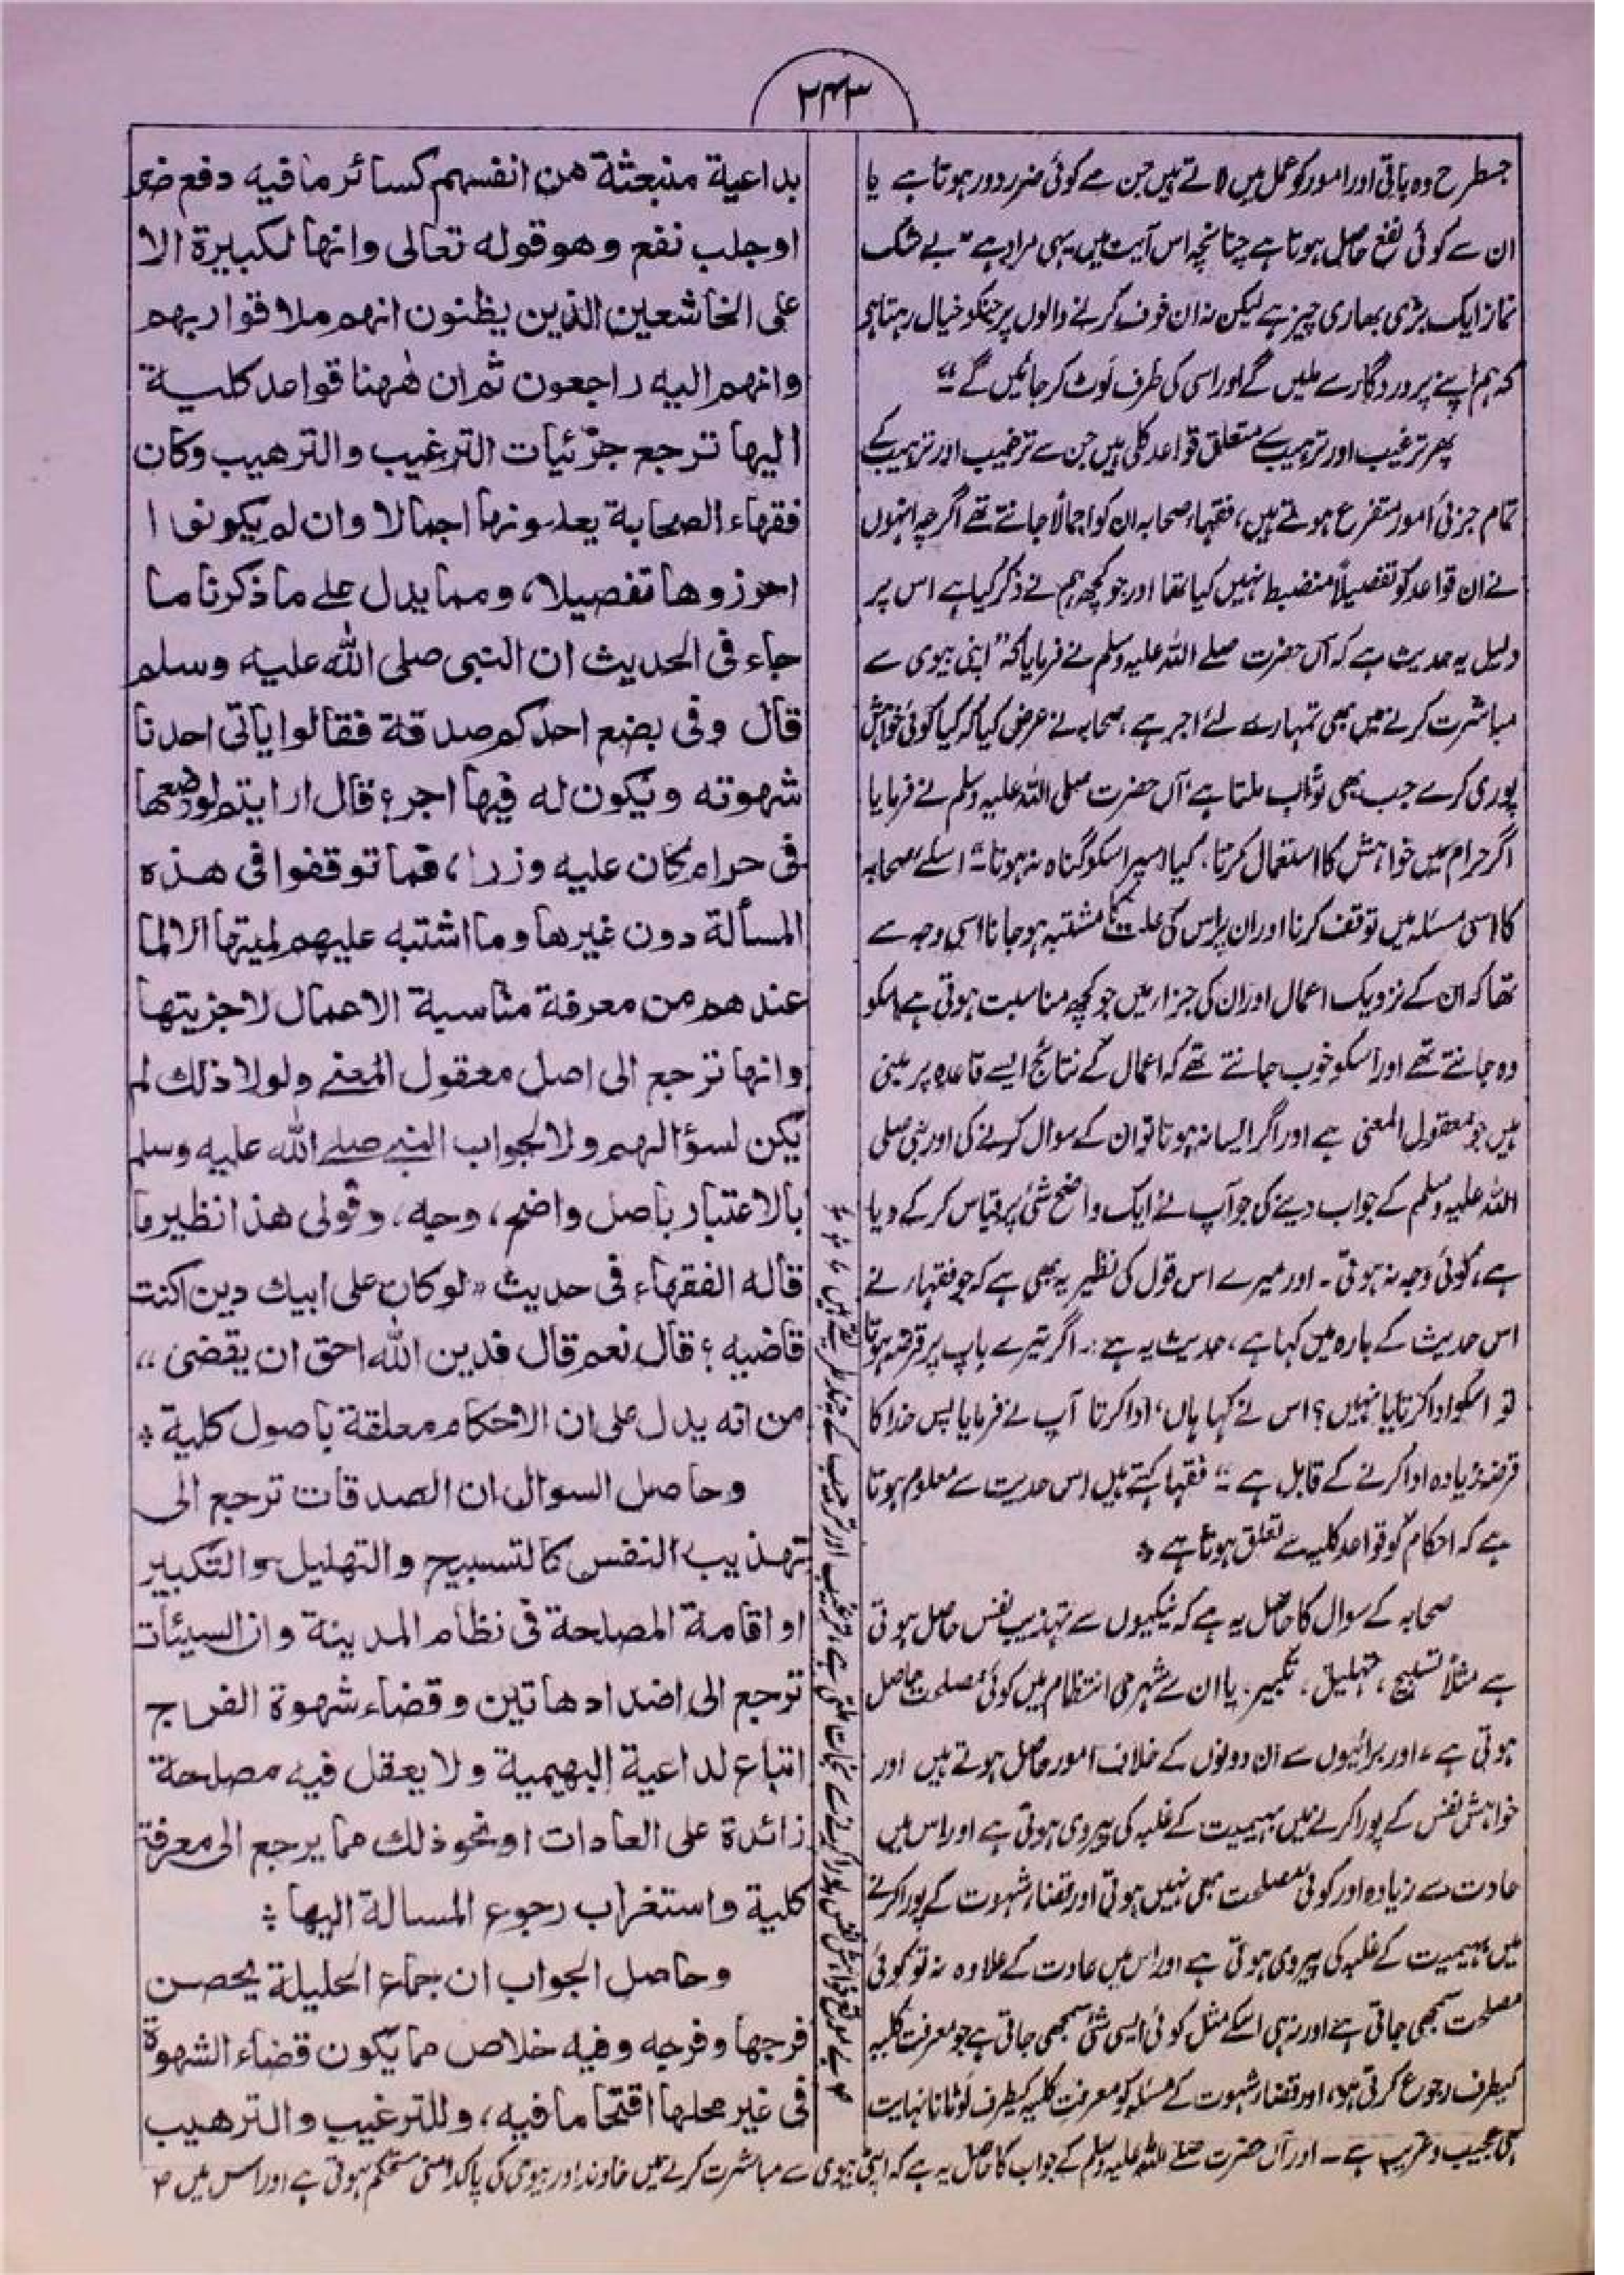 ۲۴۳
جسطرح وہ باقی اور امور کو عمل میں لاتے ہیں جن سے کوئی ضرر دور ہوتا ہے یا
ان سے کوئی نفع حاصل ہوتا ہے چنانچہ اس آیت میں یہی مراد ہے "بے شک
نماز ایک بڑی بھاری چیز ہے لیکن نہ ان خوف کرنے والوں پر جنکو خیال رہتا ہو
کہ ہم اپنے پروردگار سے ملیں گے اور اسی کی طرف لوٹ کر جائیں گے"
پھر ترغیب اور ترہیب سے متعلق قواعد کلی ہیں جن سے ترغیب اور ترہیب کے
تمام جزئی امور متفرع ہوتے ہیں، فقہاء صحابہ ان کو اجمالًا جانتے تھے اگرچہ انہوں
نے ان قواعد کو تفصیلًا منضبط نہیں کیا تھا اور جو کچھ ہم نے ذکر کیا ہے اس پر
دلیل یہ حدیث ہے کہ آں حضرت صلے اللہ علیہ وسلم نے فرمایا کہ "اپنی بیوی سے
مباشرت کرنے میں بھی تمہارے لئے اجر ہے، صحابہ نے عرض کیا کہ کیا کوئی خواہش
پوری کرے جب بھی ثواب ملتا ہے؟ آں حضرت صلی اللہ علیہ وسلم نے فرمایا
اگر حرام میں خواہش کا استعمال کرتا، کیا اسپر اسکو گناہ نہ ہوتا" اسلئے صحابہ
کا اسی مسئلہ میں توقف کرنا اور ان پر اس کی علت کا مشتبہ ہو جانا اسی وجہ سے
تھا کہ ان کے نزدیک اعمال اور ان کی جزاء میں جو کچھ مناسبت ہوتی ہے اسکو
وہ جانتے تھے اور اسکو خوب جانتے تھے کہ اعمال کے نتائج ایسے قاعدہ پر مبنی
ہیں جو معقول المعنی ہے اور اگر ایسا نہ ہوتا تو ان کے سوال کرنے کی اور نبی صلی
اللہ علیہ وسلم کے جواب دینے کی جو آپ نے ایک واضح شئ پر قیاس کر کے دیا
ہے، کوئی وجہ نہ ہوتی۔ اور میرے اس قول کی نظیر یہ بھی ہے کہ جو فقہاء نے
اس حدیث کے بارہ میں کہا ہے، حدیث یہ ہے: اگر تیرے باپ پر قرضہ ہوتا
تو اسکو ادا کرتا یا نہیں؟ اس نے کہا ہاں، ادا کرتا آپ نے فرمایا پس خدا کا
قرضہ زیادہ ادا کرنے کے قابل ہے" فقہا کہتے ہیں اس حدیث سے معلوم ہوتا
ہے کہ احکام کو قواعد کلیہ سے تعلق ہوتا ہے ٭
صحابہ کے سوال کا حاصل یہ ہے کہ نیکیوں سے تہذیب نفس حاصل ہوتی
ہے مثلًا تسبیح، تہلیل، تکبیر، یا ان سے شہر کی انتظام میں کوئی مصلحت حاصل
ہوتی ہے، اور برائیوں سے ان دونوں کے خلاف امور حاصل ہوتے ہیں اور
خواہش نفس کے پورا کرنے میں بہیمیت کے غلبہ کی پیروی ہوتی ہے اور اس میں
عادت سے زیادہ اور کوئی مصلحت بھی نہیں ہوتی اور قضاء شہوت کے پورا کرنے
میں بہیمیت کے غلبہ کی پیروی ہوتی ہے اور اس میں عادت کے علاوہ نہ تو کوئی
مصلحت سمجھی جاتی ہے اور نہ ہی اسکے مثل کوئی ایسی شئ سمجھی جاتی ہے جو معرفت کلیہ
کیطرف رجوع کرتی ہو، اور قضاء شہوت کے مسئلہ کو معرفت کلیہ کیطرف لوٹانا نہایت
ہی عجیب و غریب ہے۔ اور آں حضرت صلے اللہ علیہ وسلم کے جواب کا حاصل یہ ہے کہ اپنی بیوی سے مباشرت کرنے میں خاوند اور بیوی کی پاکدامنی مستحکم ہوتی ہے اور اس میں ۳
۳ بے موقع خواہش نفس پورا کرنے سے نجات ملتی ہے، ترغیب اور ترہیب کے چند طریقے ہیں
بداعية منبعثة من انفسهم كسائر ما فيه دفع ضر
او جلب نفع وهو قوله تعالى وانها لكبيرة الا
على الخاشعين الذين يظنون انهم ملاقوا ربهم
وانهم اليه راجعون ثم ان ههنا قواعد كلية
اليها ترجع جزئيات الترغيب والترهيب وكان
فقهاء الصحابة يعدونها اجمالا وان لم يكونوا ا
احرزوها تفصيلا، ومما يدل على ما ذكرنا ما
جاء فى الحديث ان النبى صلى الله عليه وسلم
قال وفى بضع احدكم صدقة فقالوا ياتى احدنا
شهوته ويكون له فيها اجر؟ قال ارايتم لو وضعها
فى حرام كان عليه وزرا، فما توقفوا فى هذه
المسألة دون غيرها وما اشتبه عليهم لميتها الا لما
عندهم من معرفة مناسبة الاعمال لاجزيتها
وانها ترجع الى اصل معقول المعنے ولولا ذلك لم
يكن لسؤالهم ولا لجواب النبے صلے الله عليه وسلم
بالاعتبار باصل واضح، وجه، وقولى هذا نظير ما
قاله الفقهاء فى حديث "لو كان على ابيك دين اكنت
قاضيه؟ قال نعم قال فدين الله احق ان يقضى"
من انه يدل على ان الاحكام معلقة باصول كلية ٭
وحاصل السوال ان الصدقات ترجع الى
تهذيب النفس كالتسبيح والتهليل والتكبير
او اقامة المصلحة فى نظام المدينة وان السيئات
ترجع الى اضداد هاتين وقضاء شهوة الفراج
اتباع لداعية البهيمية ولا يعقل فيه مصلحة
زائدة على العادات او نحو ذلك مما يرجع الى معرفة
كلية واستغراب رجوع المسالة اليها ٭
وحاصل الجواب ان جماع الحليلة يحصن
فرجها وفرجه وفيه خلاص مما يكون قضاء الشهوة
فى غير محلها اقتحاما فيه، وللترغيب والترهيب